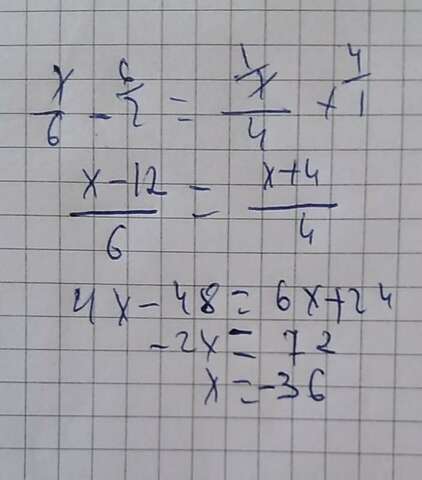 x/6 - 6/2 = 1x/4 + 4/1
x-12/6 = x+4/4
4x-48=6x+24
-2x=72
x=-36